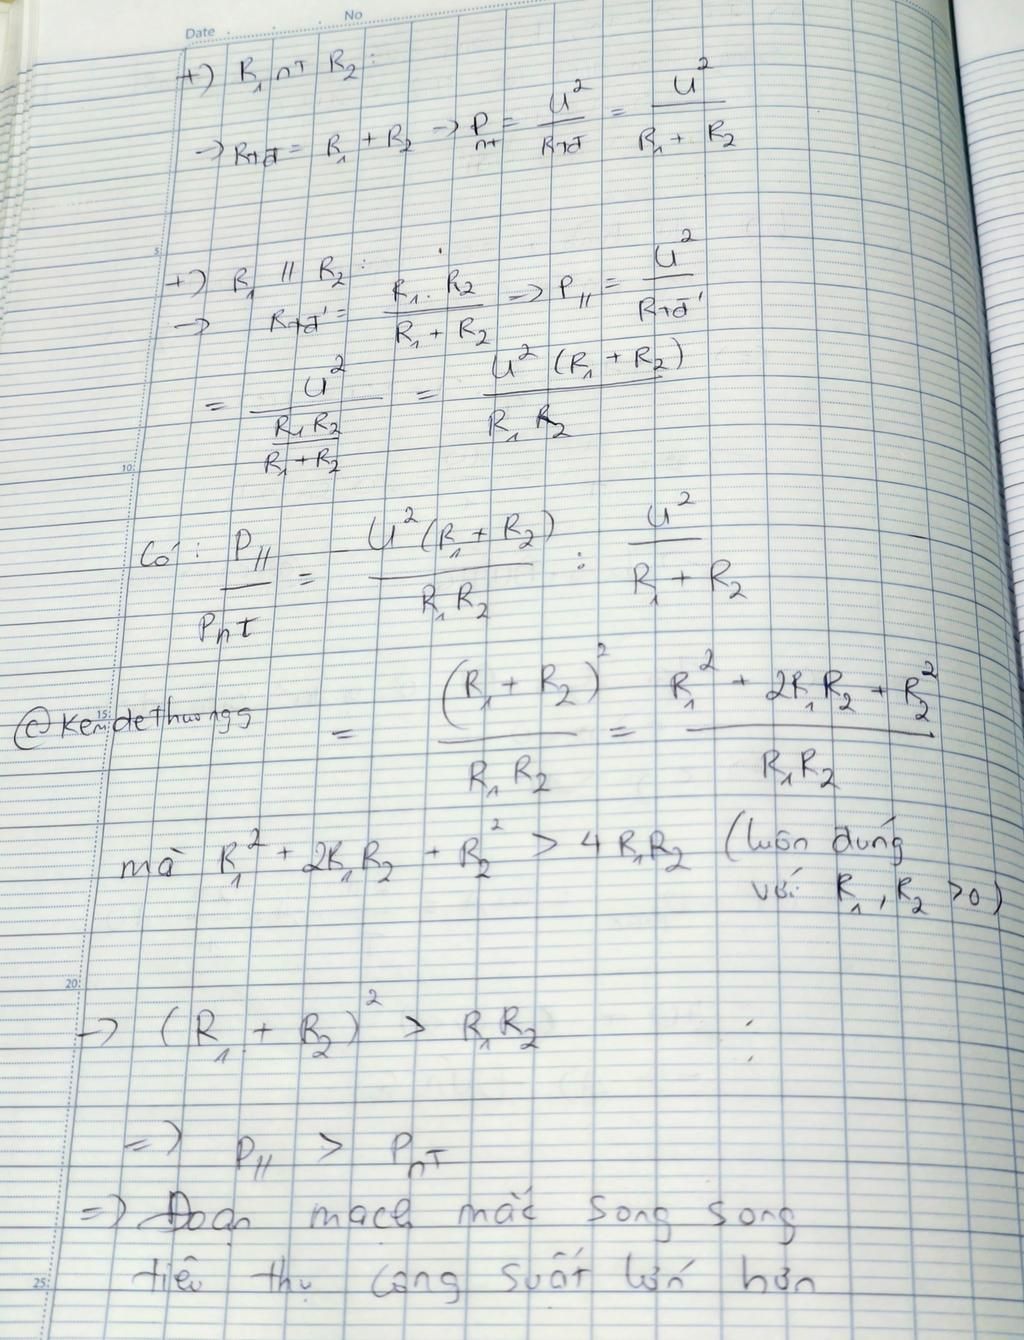 Date No
+) R₁ nT R₂ :
→ Rtđ = R₁ + R₂ → Pnt = U²/Rtđ = U²/(R₁ + R₂)
5
+) R₁ // R₂ :
→ Rtđ' = (R₁ . R₂)/(R₁ + R₂) → P// = U²/Rtđ'
= U²/((R₁ R₂)/(R₁ + R₂)) = U² (R₁ + R₂)/(R₁ R₂)
10
Có : P///Pnt = U² (R₁ + R₂)/(R₁ R₂) : U²/(R₁ + R₂)
15
@Kemdethuongs = (R₁ + R₂)²/(R₁ R₂) = (R₁² + 2R₁R₂ + R₂²)/(R₁R₂)
mà R₁² + 2R₁R₂ + R₂² > 4R₁R₂ (luôn đúng
với R₁, R₂ >0)
20
→ (R₁ + R₂)² > R₁R₂
=> P// > PnT
=> Đoạn mạch mắc song song
25
tiêu thụ công suất lớn hơn